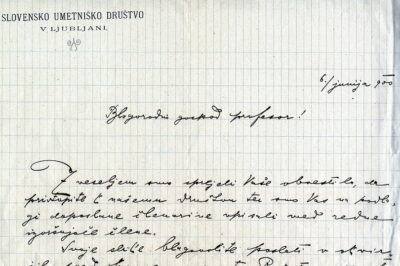 SLOVENSKO UMETNIŠKO DRUŠTVO
V LJUBLJANI.
6./junija 900
Blagorodni gospod profesor!
Z veseljem smo sprejeli Vaše obvestilo, da
pristopite k našemu društvu ter smo Vas na podla-
gi doposlane članarine vpisali med redne
izvršujoče člene.
Svoje slike blagovolite poslati v okvir-